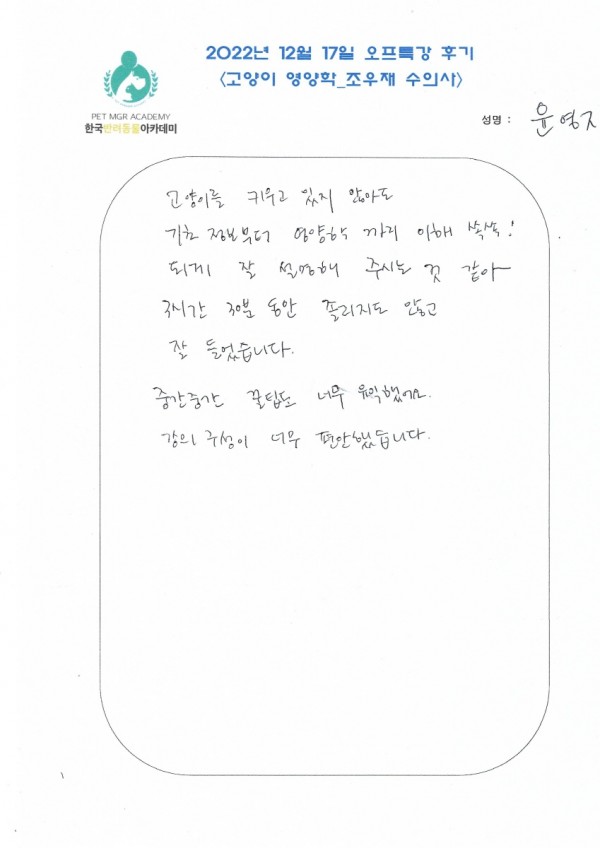 2022년 12월 17일 오프특강 후기
<고양이 영양학_조우재 수의사>
PET MGR ACADEMY
한국반려동물아카데미
성명 : 윤영지
고양이를 키우고 있지 않아도
기초 정보부터 영양학 까지 이해 쏙쏙!
되게 잘 설명해 주시는 것 같아
3시간 30분 동안 졸리지도 않고
잘 들었습니다.
중간중간 꿀팁도 너무 유익했어요.
강의 구성이 너무 편안했습니다.